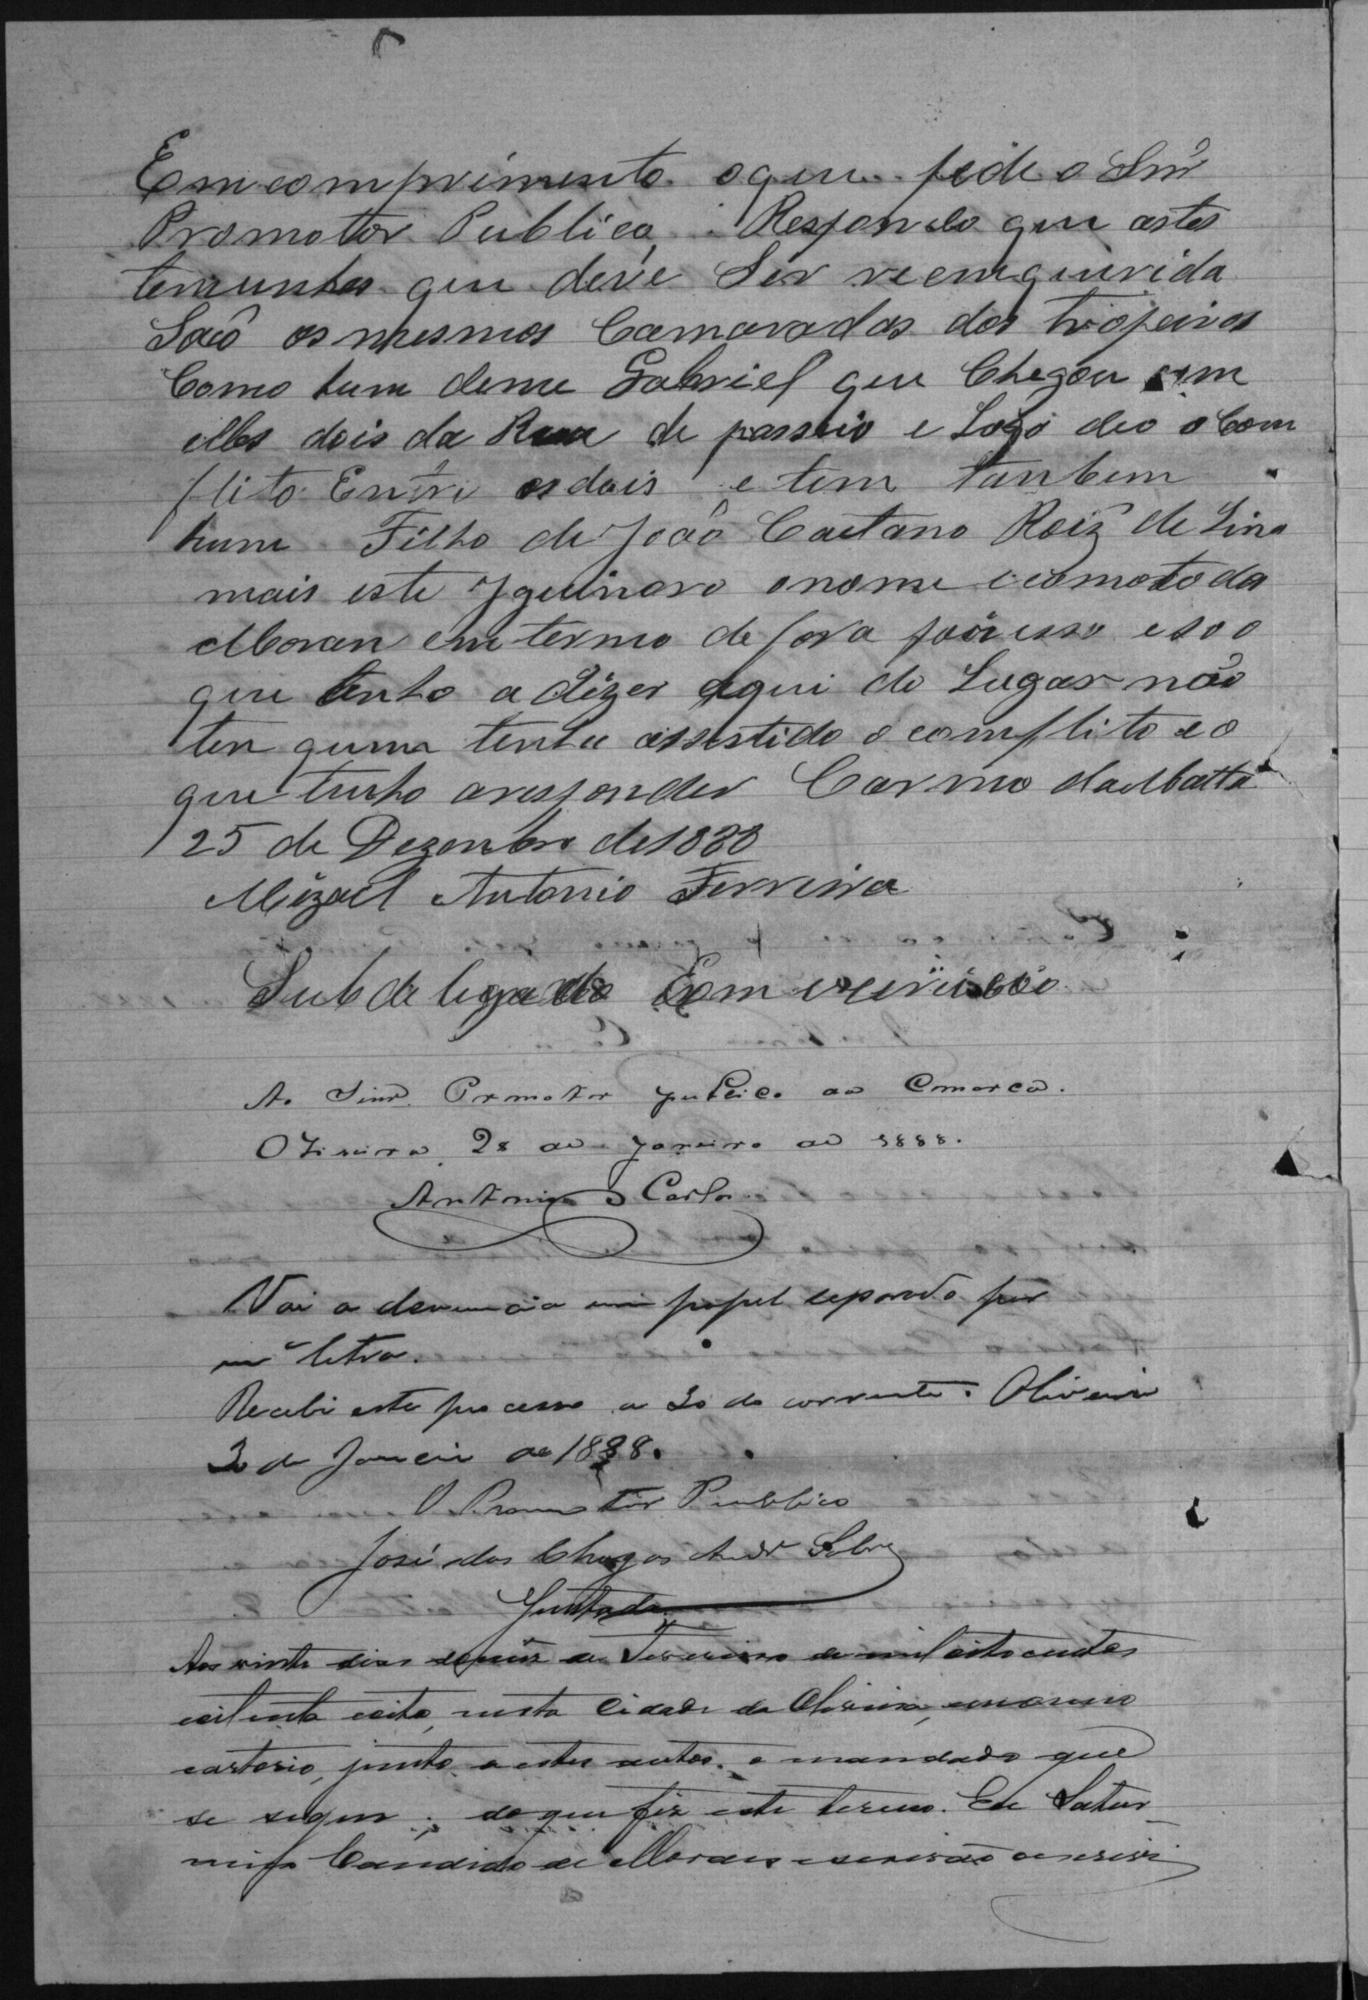 Em comprimento oque pede o Snr
Promotor Publico, Respondo que astes
temunhas que deve Ser reemquirida
Saõ os mesmos Camaradas dos tropeiros
Como hum deme Gabriel que Chegou com
elles dois da Rua de passeio e Logo deo o Com
flito Entre os dois e tem tanbem
hum Filho de João Caetano Roiz de Lima
mais este Yguinoro o nome e como todos
Moran em termo de fora por isso e so o
que tenho a dizer aqui do Lugar não
ten quem tenha assistido o comflito e o
que tenho a responder Carmo da Matta
25 de Dezembro de 1888
Mizael Antonio Ferreira
Subdelegado Em
Ao Senr. Promotor publico da Comarca.
Oliveira, 28 de Janeiro de 1888.
Antonio Carlos
Vai a denuncia em papel separado por
mª letra.
Recebi este processo a 30 do corrente. Oliveira
30 de Janeiro de 1888.
O Promotor Publico
José das Chagas Andrº Sobrº
Juntada
Aos vinte dias do mez de Fevereiro de mil oito centos
oitenta e oito, nesta Cidade da Oliveira, em o meu
cartorio, junto a estes autos o mandado que
se segue; do que fiz este termo. Eu Satur
nino Candido de Moraes escrivão o escrevi